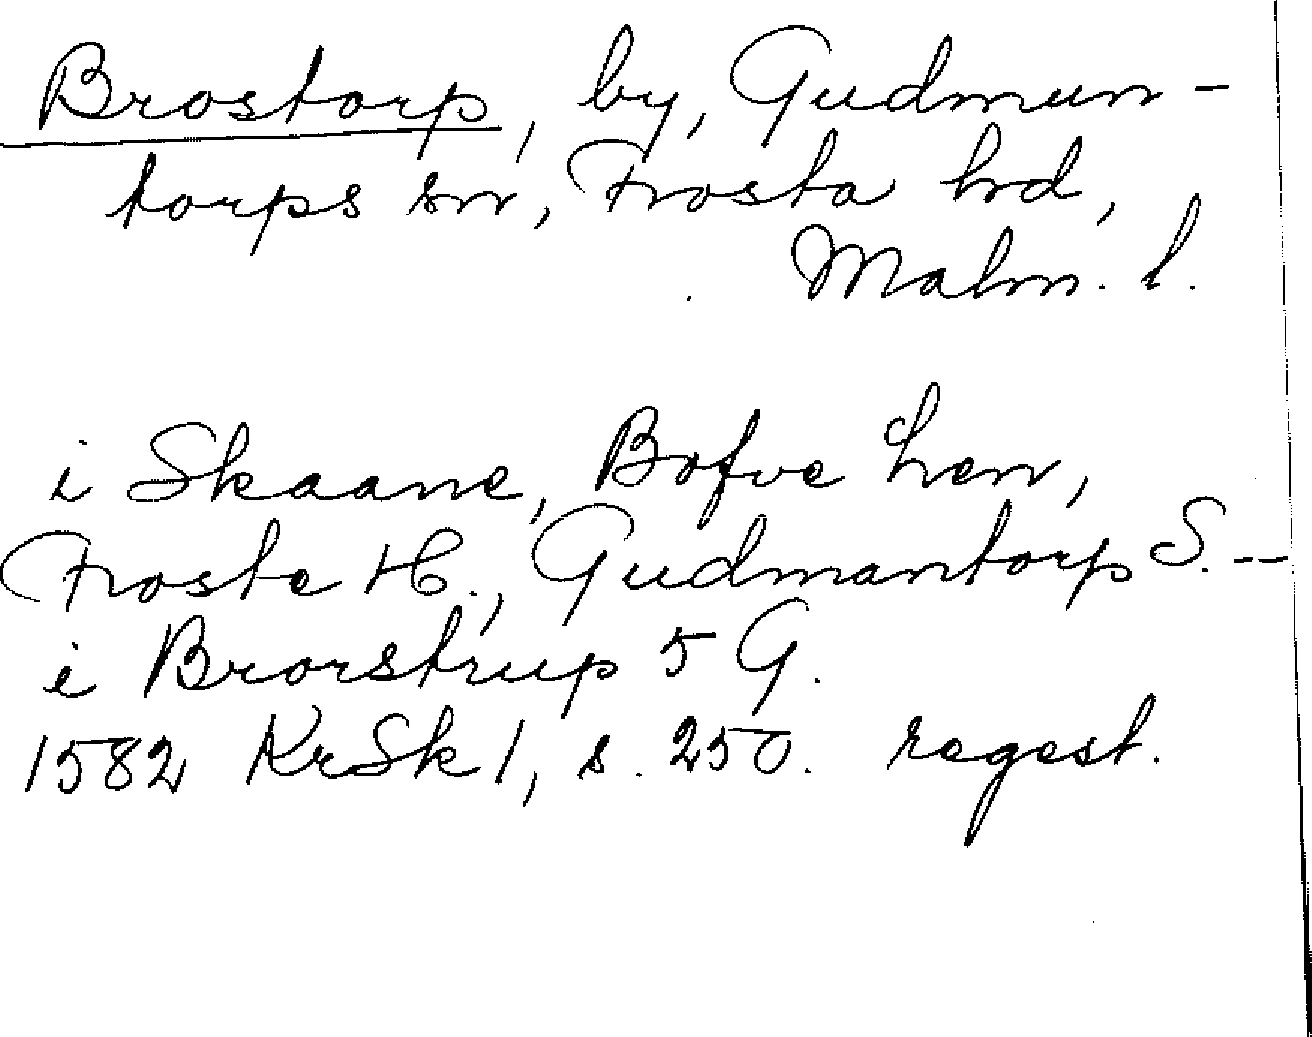 Brostorp, by, Gudmun-
torps sn, Frosta hd,
Malm. l.
i Skaane, Bofve Len,
Froste H., Gudmantorp S. --
i Brorstrup 5 G.
1582 KrSk 1, s. 250. regest.